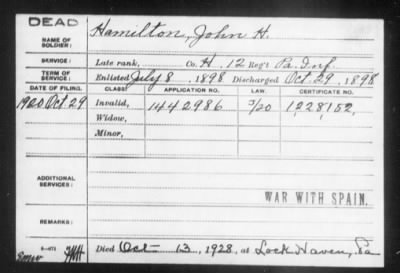 DEAD
NAME OF SOLDIER: Hamilton, John H.
SERVICE: Late rank, Co. H. 12 Reg't Pa. Inf.
TERM OF SERVICE: Enlisted July 8, 1898 Discharged Oct. 29, 1898
DATE OF FILING. CLASS. APPLICATION NO. LAW. CERTIFICATE NO.
1920 Oct. 29 Invalid, 1442986 3/20 1228152
Widow,
Minor,
ADDITIONAL SERVICES:
WAR WITH SPAIN.
REMARKS:
Died Oct 13, 1928, at Lock Haven, Pa